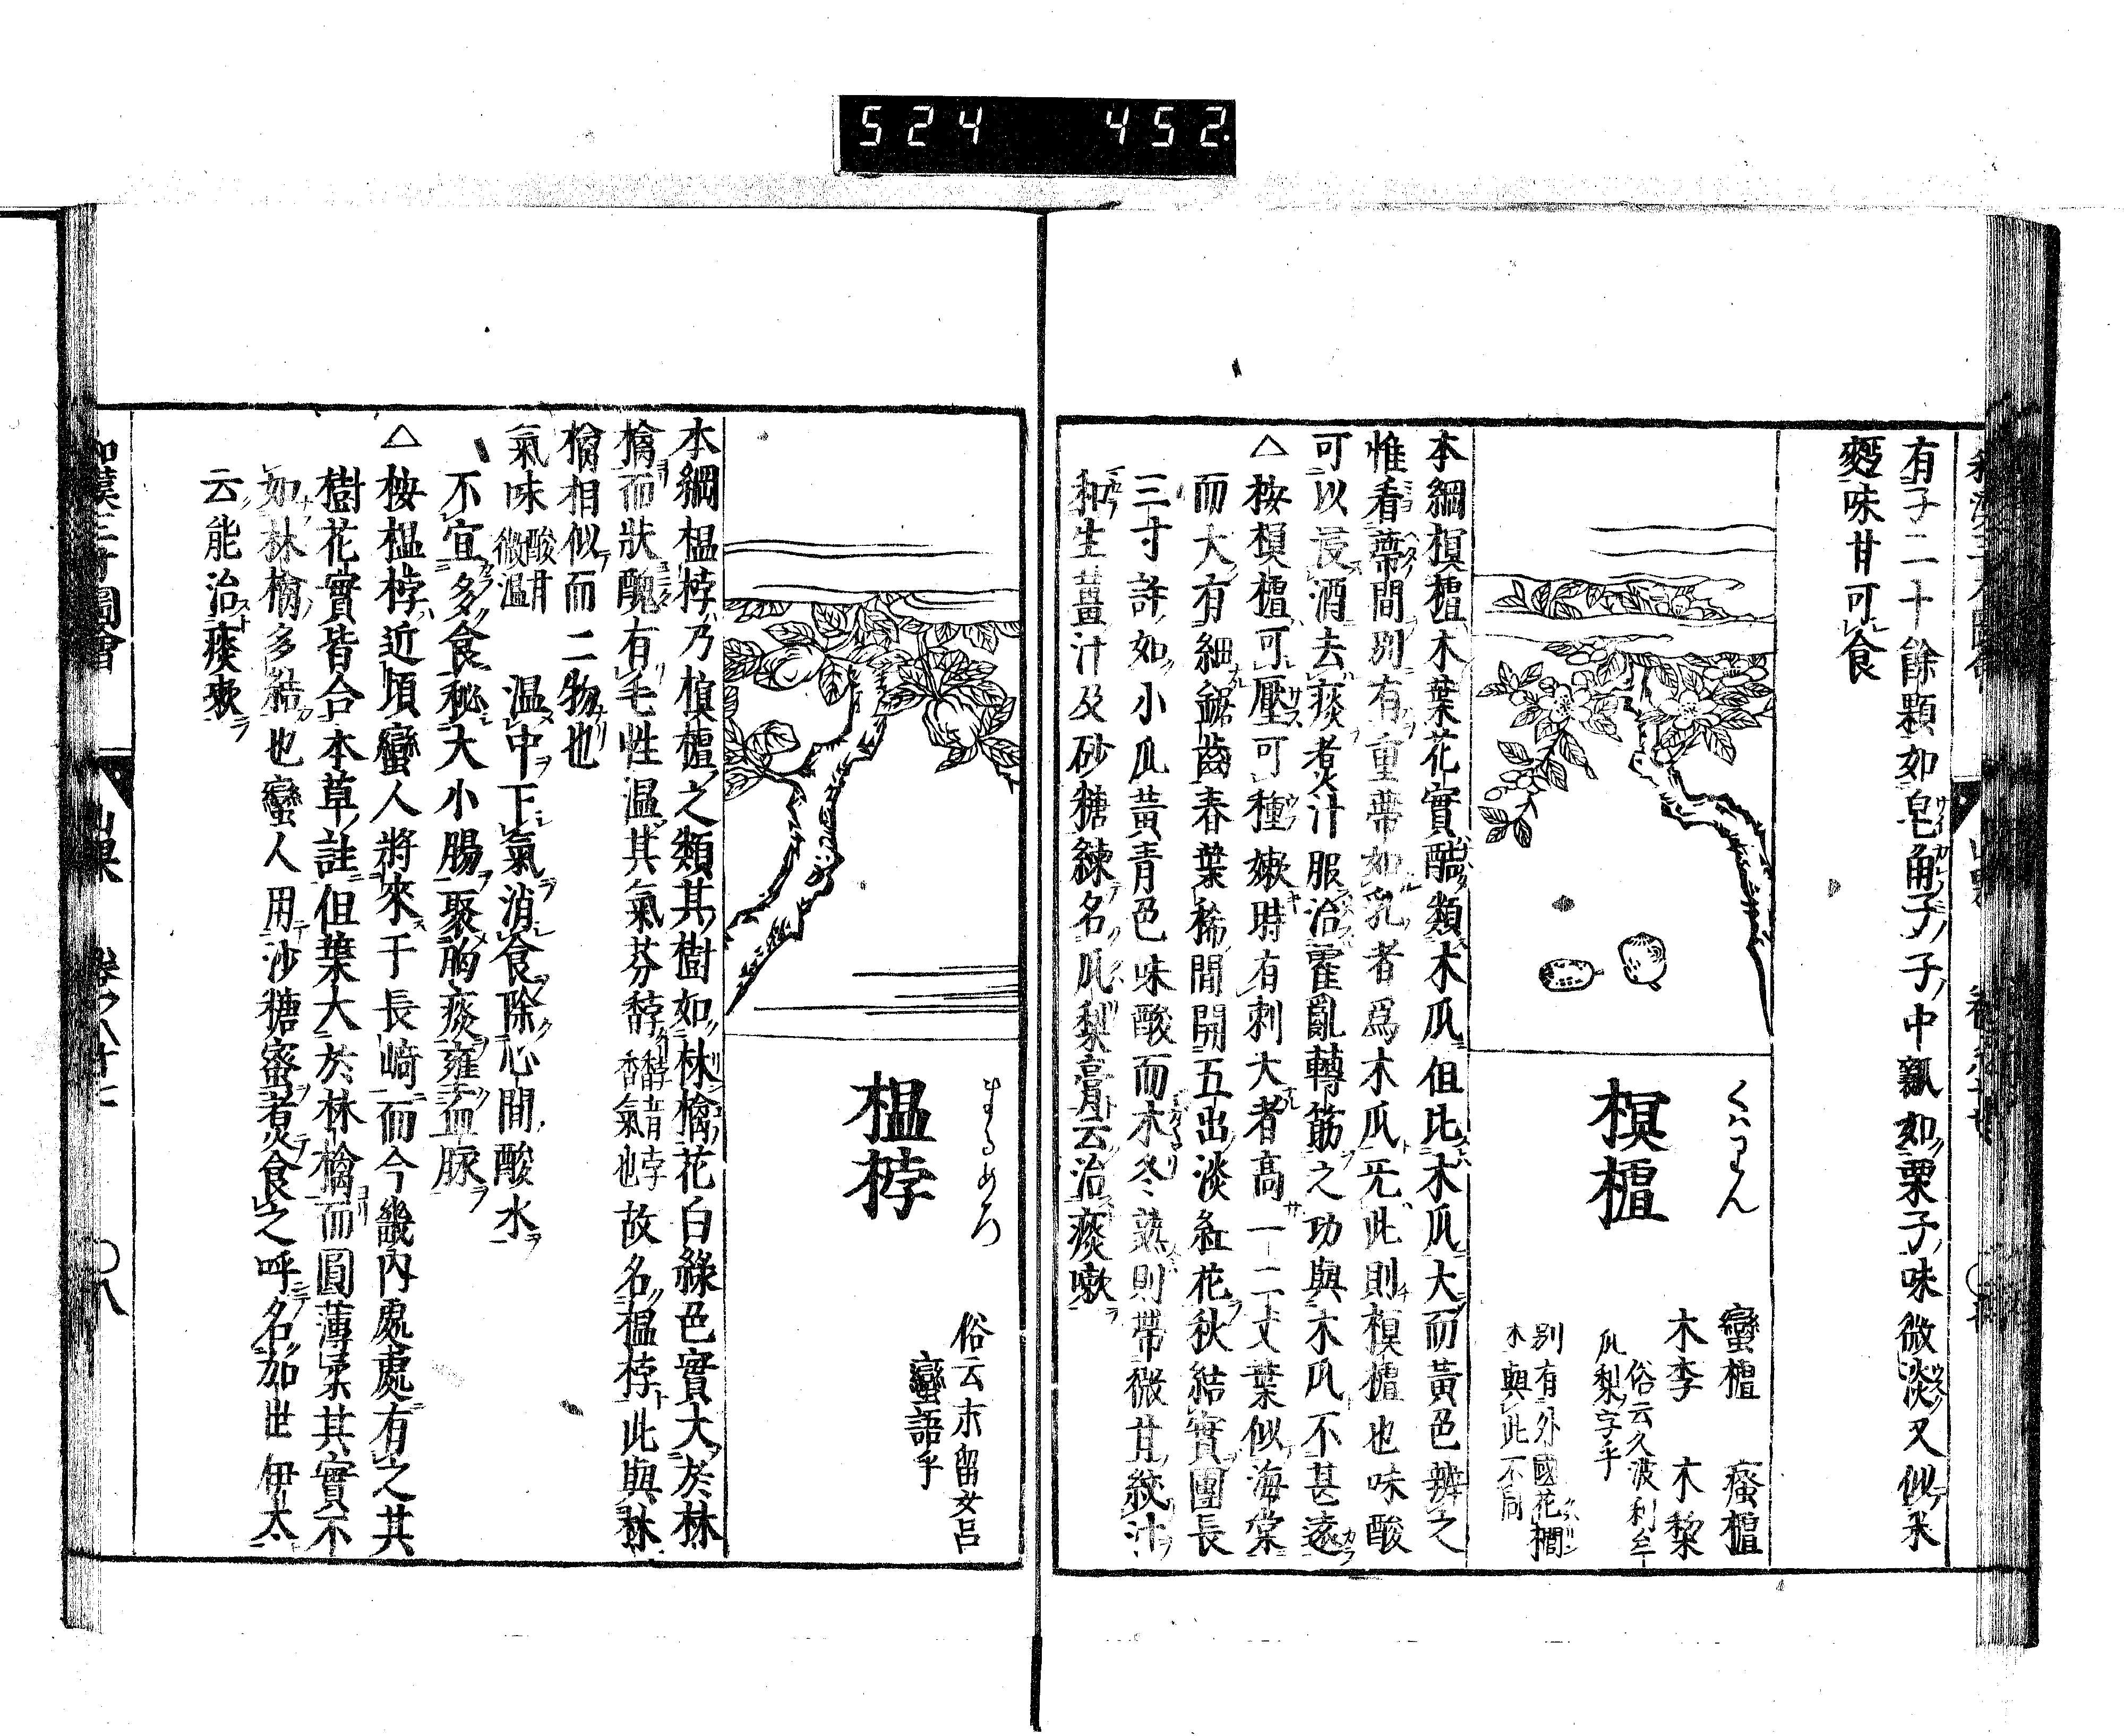 524 452
有子二十餘顆如皂角子子中瓤如栗子味微淡又似米
麪味甘可食
くはりん
榠樝
蠻樝 瘙樝
木李 木梨
俗云久波利牟
瓜梨字乎
別有外國花櫚
木與此不同
本綱榠樝木葉花實酷類木瓜但比木瓜大而黃色辨之
惟看蔕間別有重蔕如乳者爲木瓜无此則榠樝也味酸
可以浸酒去痰煮汁服治霍亂轉筋之功與木瓜不甚遠
△按榠樝可壓可種嫩時有刺大者高一二丈葉似海棠
而大有細鋸齒春葉稀間開五出淡紅花秋結實團長
三寸許如小瓜黃青色味酸而木冬熟則帶微甘絞汁
和生薑汁及砂糖練名瓜梨膏云治痰嗽
まるめろ
榲桲
俗云末留女呂
蠻語乎
本綱榲桲乃榠樝之類其樹如林檎花白綠色實大於林
檎而狀醜有毛性温其氣芬馞馞音孛香氣也故名榲桲此與林
檎相似而二物也
氣味酸甘微温 温中下氣消食除心間酸水
不宜多食秘大小腸聚胸痰壅血脉
△按榲桲近頃蠻人將來于長崎而今畿内處處有之其
樹花實皆合本草註但葉大於林檎而圓薄柔其實不
如林檎多結也蠻人用沙糖蜜煮食之呼名加世伊太
云能治痰嗽
和漢三才圖會 山果 卷之八十七 〇八